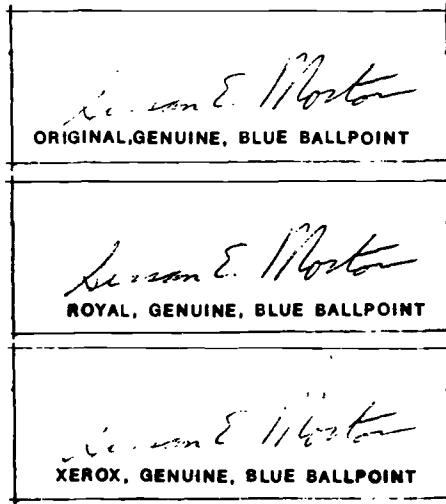 Susan E. Morton
ORIGINAL,GENUINE, BLUE BALLPOINT
Susan E. Morton
ROYAL, GENUINE, BLUE BALLPOINT
Susan E Morton
XEROX, GENUINE, BLUE BALLPOINT